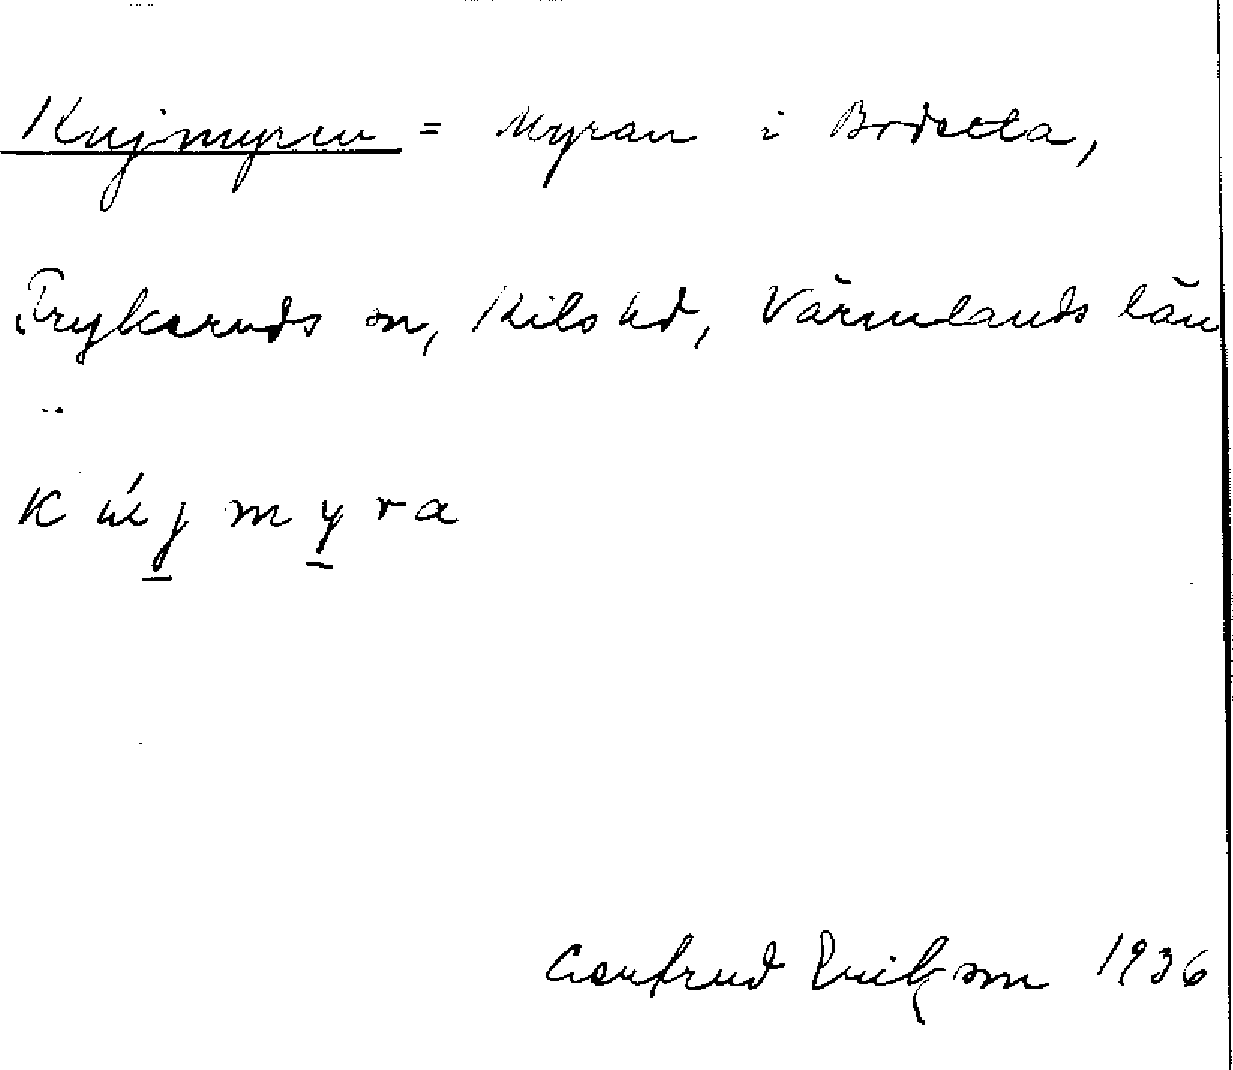 Kujmyren = Myran i Brdsetta,
Frykeruds sn, Kils hd, Värmlands län
K új m y r a
Gertrud Eriksson 1936